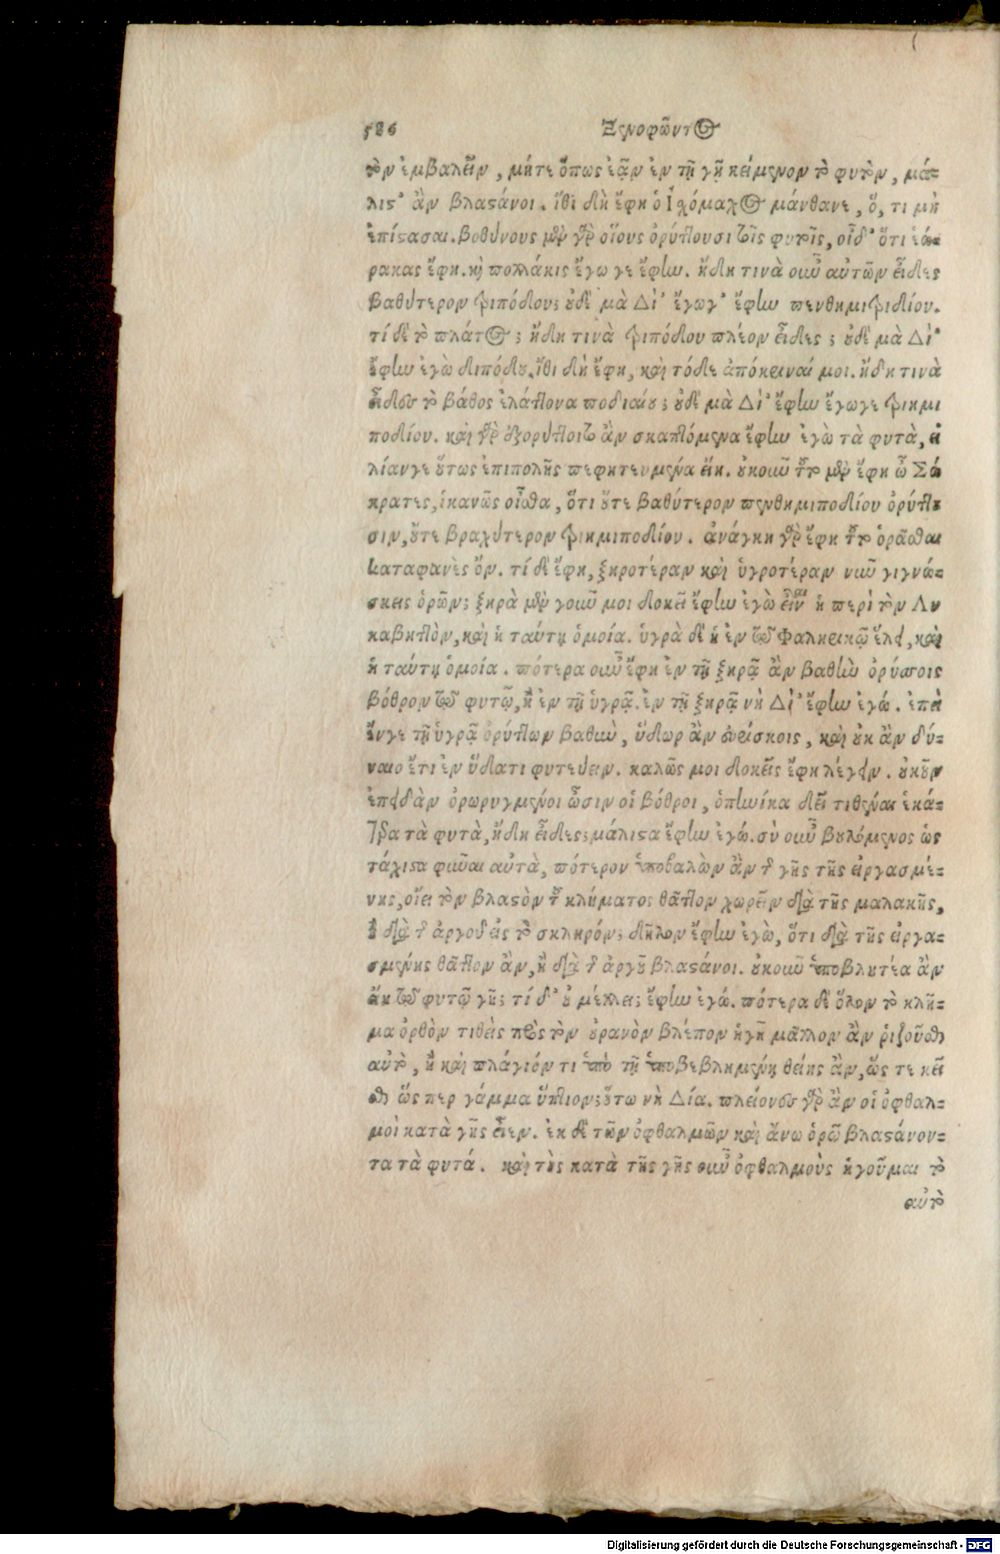 586 Ξενοφῶντος
τὸν ἐμβαλεῖν, μήτε ὅπως ἐᾷν ἐν τῇ γῇ κείμενον τὸ φυτὸν, μά-
λιστ' ἂν βλαστάνοι. ἴθι δὴ ἔφη ὁ Ἰχόμαχος μάνθανε, ὅ, τι μὴ
ἐπίστασαι. βοθύνους μὲν γὰρ οἵους ὀρύττουσι τοῖς φυτοῖς, οἶδ' ὅτι ἑώ-
ρακας ἔφη. καὶ πολλάκις ἔγωγε ἔφην. ἤδη τινὰ οὖν αὐτῶν εἶδες
βαθύτερον τριπόδου; οὐδὲ μὰ Δί' ἔγωγ' ἔφην πενθημιποδίου.
τί δὲ τὸ πλάτος; ἤδη τινὰ τριπόδου πλέον εἶδες; οὐδὲ μὰ Δί'
ἔφην ἐγὼ διπόδου. ἴθι δὴ ἔφη, καὶ τόδε ἀπόκριναί μοι. ἤδη τινὰ
εἶδες τὸ βάθος ἐλάττονα ποδιαίου; οὐδὲ μὰ Δί' ἔφην ἔγωγε τριημι
ποδίου. καὶ γὰρ ἐξορύττοιτο ἂν σκαπτόμενα ἔφην ἐγὼ τὰ φυτὰ, εἰ
λίαν γε οὕτως ἐπιπολῆς πεφυτευμένα εἴη. οὐκοῦν τοῦτο μὲν ἔφη ὦ Σώ
κρατες, ἱκανῶς οἶσθα, ὅτι οὔτε βαθύτερον πενθημιποδίου ὀρύττου
σιν, οὔτε βραχύτερον τριημιποδίου. ἀνάγκη γὰρ ἔφη τοῦτο ὁρᾶσθαι
καταφανὲς ὄν. τί δὲ ἔφη, ξηροτέραν καὶ ὑγροτέραν γῆν γιγνώ-
σκεις ὁρῶν; ξηρὰ μὲν γοῦν μοι δοκεῖ ἔφην ἐγὼ εἶναι ἡ περὶ τὸν Λυ
καβηττὸν, καὶ ἡ ταύτῃ ὁμοία. ὑγρὰ δὲ ἡ ἐν τῷ Φαληρικῷ ἕλει, καὶ
ἡ ταύτῃ ὁμοία. πότερα οὖν ἔφη ἐν τῇ ξηρᾷ ἂν βαθὺν ὀρύττοις
βόθρον τῷ φυτῷ, ἢ ἐν τῇ ὑγρᾷ. ἐν τῇ ξηρᾷ νὴ Δί' ἔφην ἐγώ. ἐπεὶ
ἔν γε τῇ ὑγρᾷ ὀρύττων βαθὺν, ὕδωρ ἂν εὑρίσκοις, καὶ οὐκ ἂν δύ-
ναιο ἔτι ἐν ὕδατι φυτεύειν. καλῶς μοι δοκεῖς ἔφη λέγειν. οὐκοῦν
ἐπειδὰν ὀρωρυγμένοι ὦσιν οἱ βόθροι, ὁπηνίκα δεῖ τιθέναι ἑκά-
τερα τὰ φυτὰ, ἤδη εἶδες; μάλιστα ἔφην ἐγώ. σὺ οὖν βουλόμενος ὡς
τάχιστα φῦναι αὐτὰ, πότερον ὑποβαλὼν ἂν τῆς γῆς τῆς εἰργασμέ-
νης, οἴει τὸν βλαστὸν τοῦ κλήματος θᾶττον χωρεῖν διὰ τῆς μαλακῆς,
ἢ διὰ τῆς ἀργοῦ εἰς τὸ σκληρόν; δῆλον ἔφην ἐγὼ, ὅτι διὰ τῆς εἰργα-
σμένης θᾶττον ἂν, ἢ διὰ τῆς ἀργοῦ βλαστάνοι. οὐκοῦν ὑποβλητέα ἂν
εἴη τῷ φυτῷ γῆ; τί δ' οὐ μέλλει; ἔφην ἐγώ. πότερα δὲ ὅλον τὸ κλῆ-
μα ὀρθὸν τιθεὶς πρὸς τὸν οὐρανὸν βλέπον ἡγῇ μᾶλλον ἂν ῥιζοῦσθαι
αὐτὸ, ἢ καὶ πλάγιόν τι ὑπὸ τῇ ὑποβεβλημένῃ θείης ἂν, ὥς τε κεῖ
σθαι ὥς περ γάμμα ὕπτιον; οὕτω νὴ Δία. πλείονες γὰρ ἂν οἱ ὀφθαλ-
μοὶ κατὰ γῆς εἶεν. ἐκ δὲ τῶν ὀφθαλμῶν καὶ ἄνω ὁρῶ βλαστάνον-
τα τὰ φυτά. καὶ τοὺς κατὰ τῆς γῆς οὖν ὀφθαλμοὺς ἡγοῦμαι τὸ
αὐτὸ
Digitalisierung gefördert durch die Deutsche Forschungsgemeinschaft - DFG